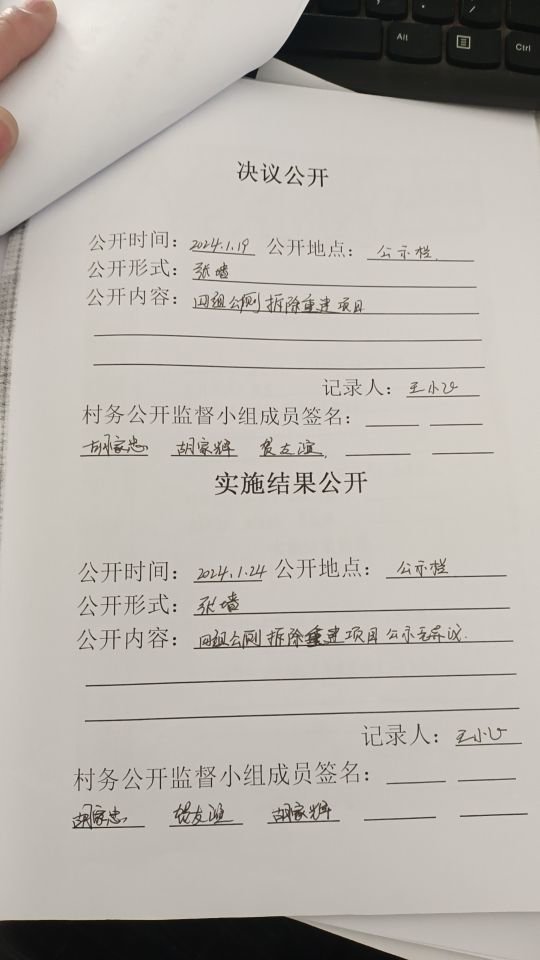 Alt
Ctrl
决议公开
公开时间：2024.1.19 公开地点：公示栏
公开形式：张墙
公开内容：四组公厕拆除重建项目
记录人：王小
村务公开监督小组成员签名：
胡家忠 胡家辉 友谊
实施结果公开
公开时间：2024.1.24 公开地点：公示栏
公开形式：张墙
公开内容：四组公厕拆除重建项目公示无异议
记录人：王小
村务公开监督小组成员签名：
胡家忠 友谊 胡家辉